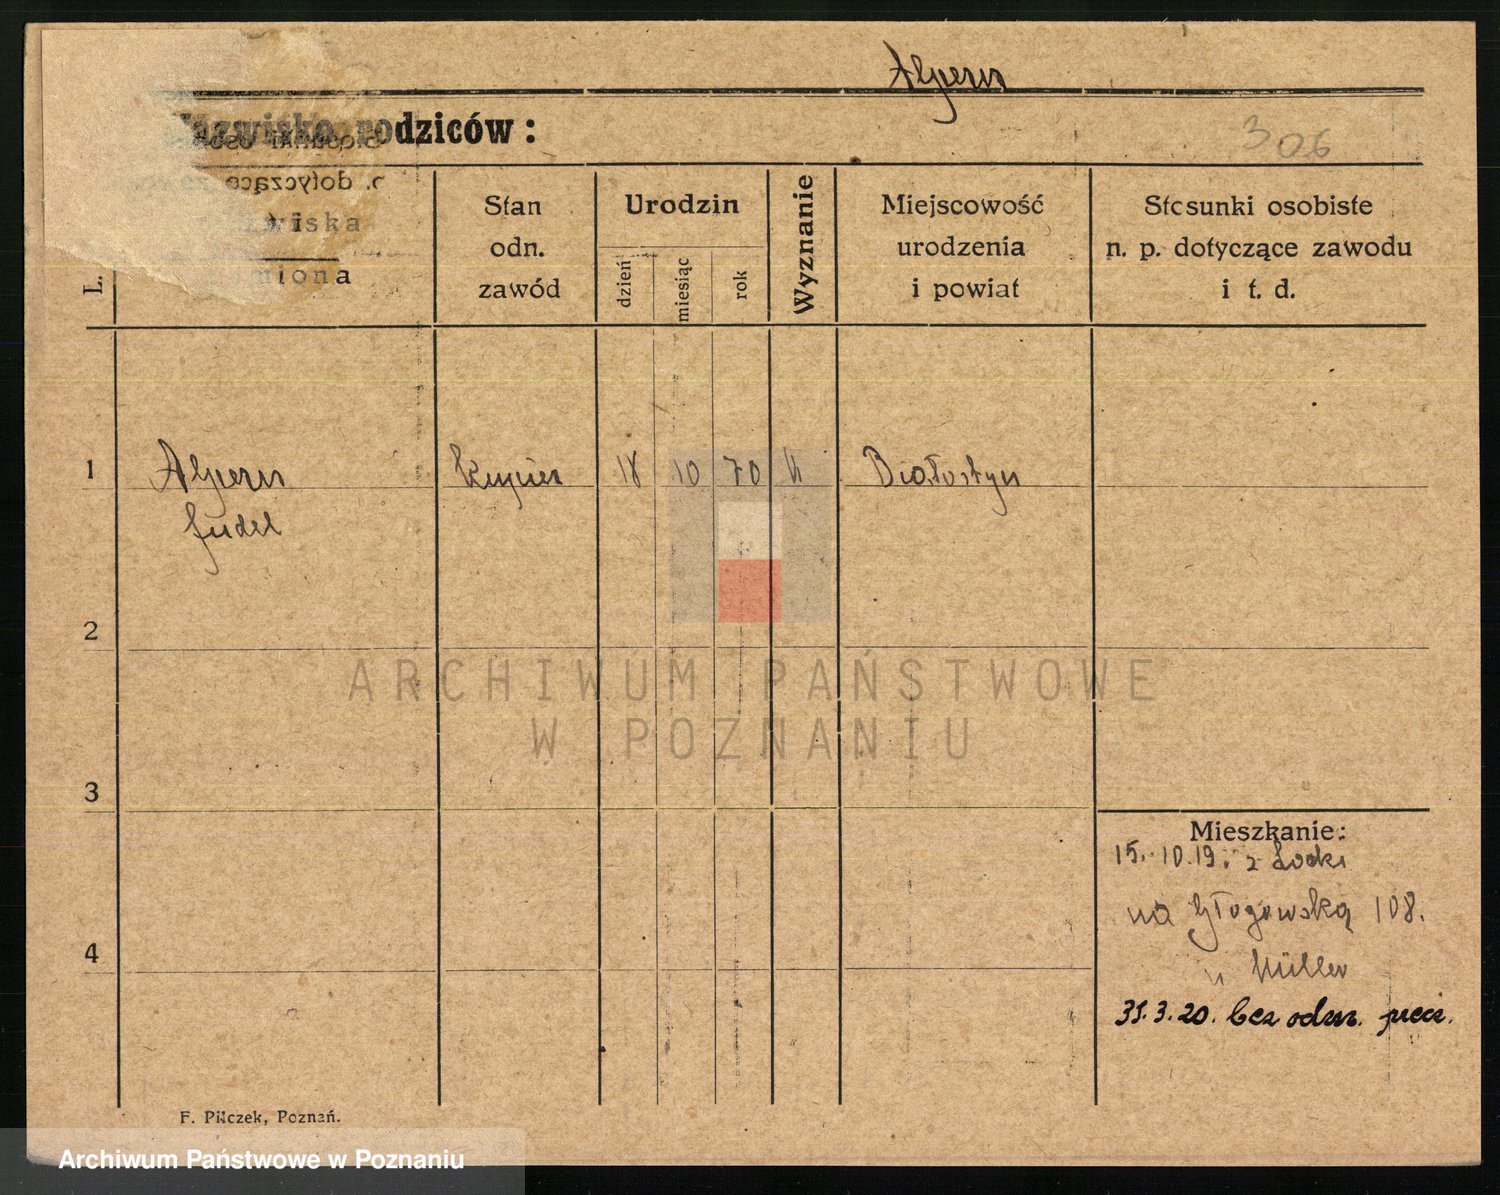 Alpern
Nazwisko rodziców:
306
L.
nazwiska
imiona
Stan
odn.
zawód
Urodzin
dzień
miesiąc
rok
Wyznanie
Miejscowość
urodzenia
i powiat
Stosunki osobiste
n. p. dotyczące zawodu
i t. d.
1 Alpern kupiec 18 10 70 Białystyn
Judel
2
ARCHIWUM PAŃSTWOWE
W POZNANIU
3
Mieszkanie:
15.10.19. z Łodzi
na Głogowską 108.
4
u Müller
31.3.20. bez odm.
F. Pilczek, Poznań.
Archiwum Państwowe w Poznaniu